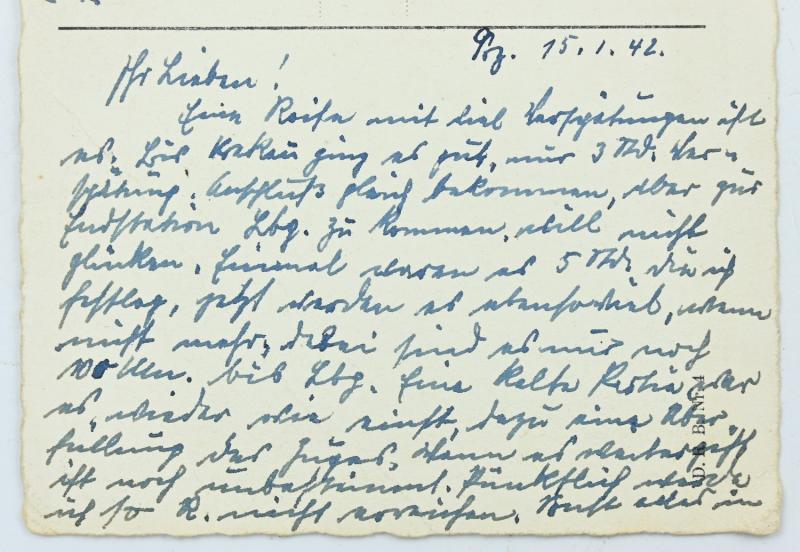 Prz. 15.1.42.
Ihr Lieben!
Eine Reise mit viel Verspätungen ist
es. Bis Krakau ging es gut, nur 3 Std. Ver-
spätung. Anschluß gleich bekommen, aber zur
Endstation Lbg. zu kommen, will nicht
glücken. Einmal waren es 5 Std. die ich
festlag, jetzt werden es ebensoviel, wenn
nicht mehr, dabei sind es nur noch
100 Klm. bis Lbg. Eine kalte Partie war
es wieder wie einst, dazu eine Über-
füllung des Zuges. Wann es weitergeht
ist noch unbestimmt. Pünktlich werde
ich so R. nicht erreichen. Sonst alles in
D. R. B. Nr. 4